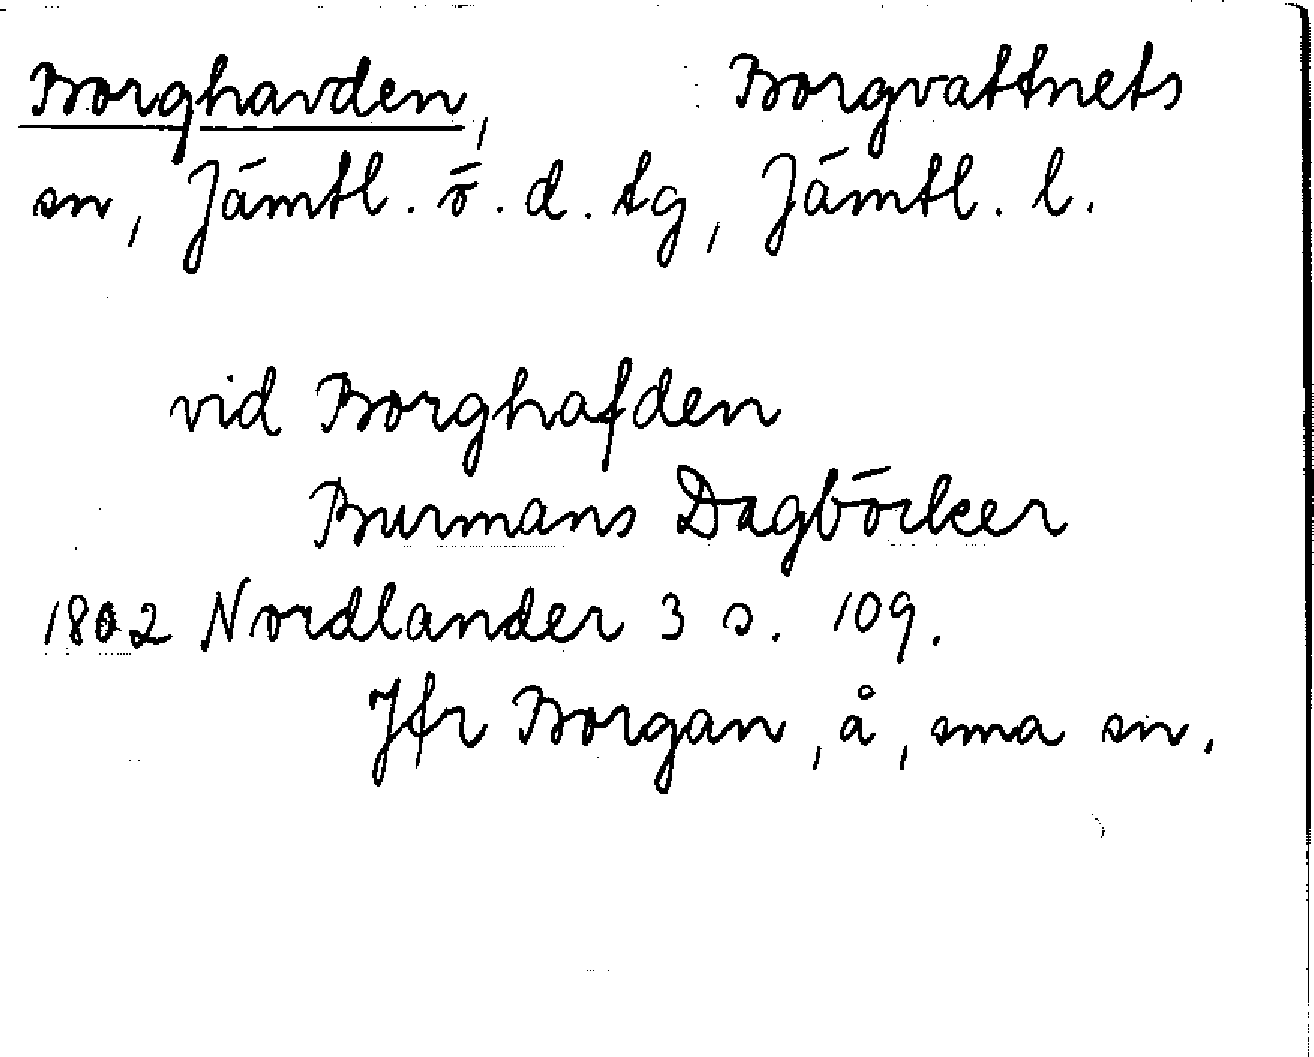 Borghavden, Borgvattnets
sn, Jämtl. ö. d. tg, Jämtl. l.
vid Borghafden
Burmans Dagböcker
1802 Nordlander 3 s. 109.
Jfr Borgan, å, sma sn.